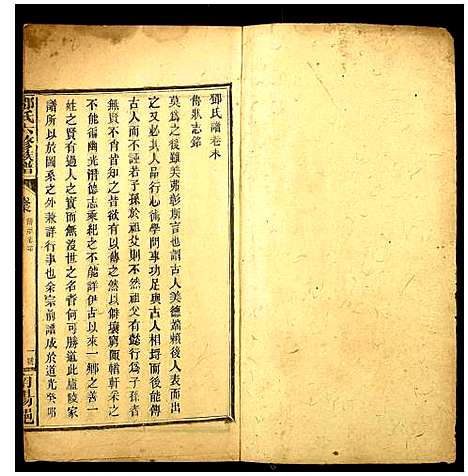 鄧氏譜卷末
傳狀志銘
莫為之後雖美弗彰所言也謂古人美德端賴後人表而出
之又必其人品行心術學問事功足與古人相埒而後能傳
古人而不誣若子孫於祖父則不然祖父有懿行為子孫者
無賢不肖皆有以傳之然僻壤窮陬輶軒采之
不能徧幽光潛德志乘紀之不能詳伊古以來一鄉之善一
姓之賢有過人之實而無後世之名者何可勝道此廬陵家
譜所以於圖系之外兼詳行事也余宗前譜成於道光癸卯
鄧氏六修族譜
卷末
南陽堂